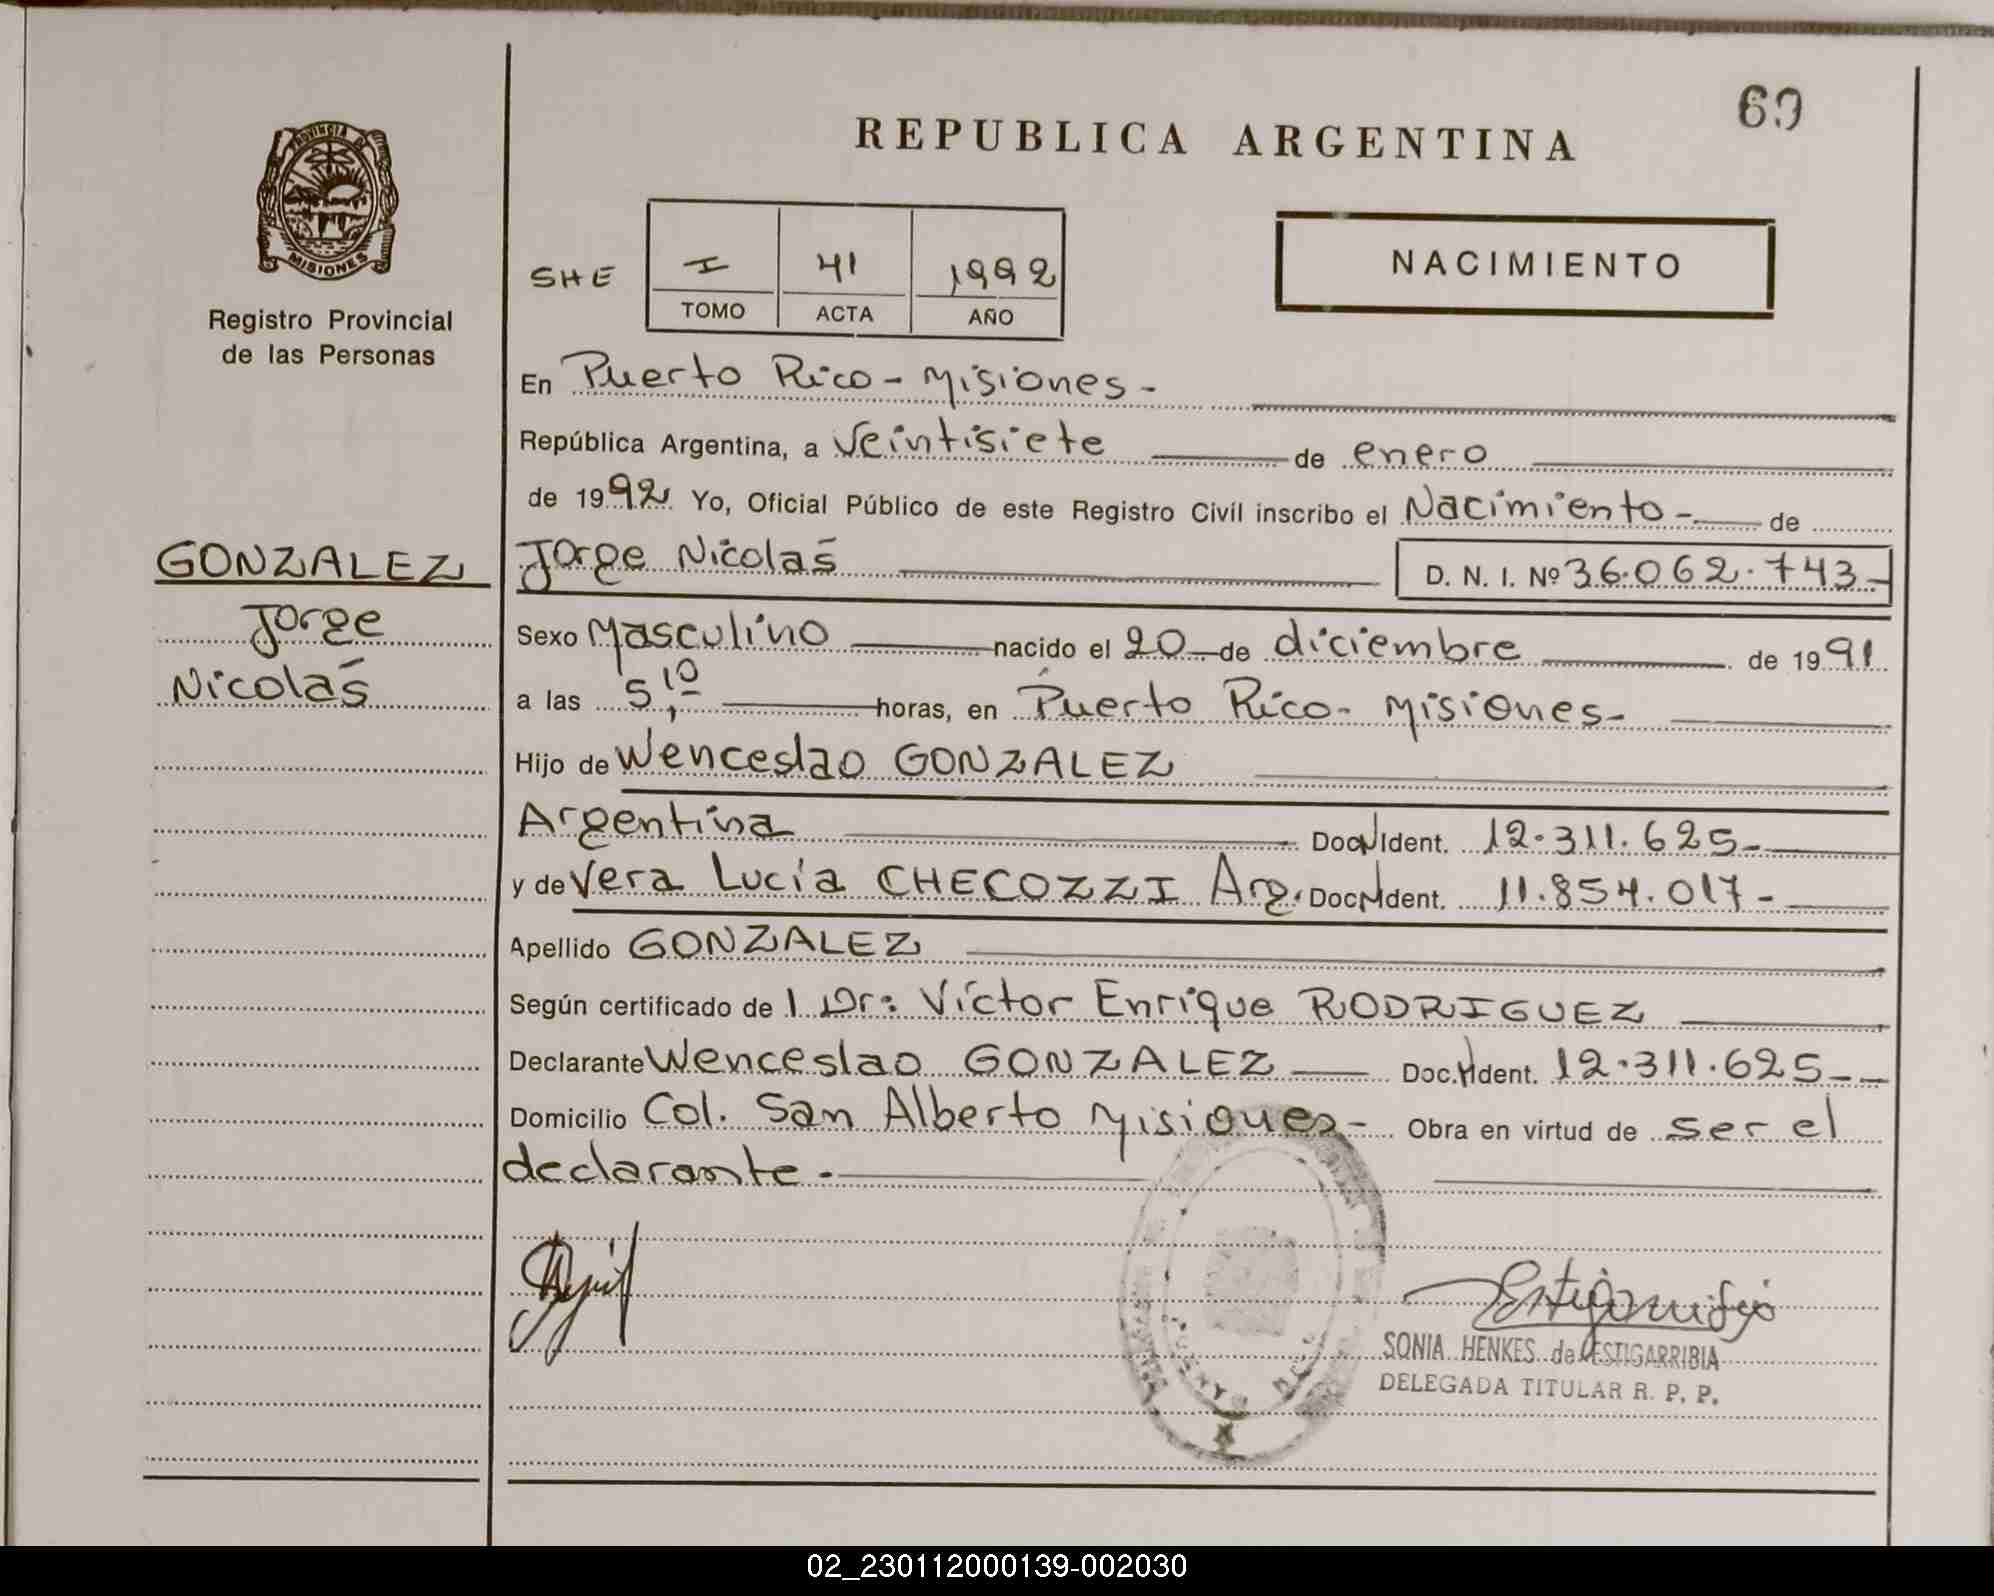 69
REPUBLICA ARGENTINA
PROVINCIA DE
MISIONES
Registro Provincial
de las Personas
SHE
I 41 1992
TOMO ACTA AÑO
NACIMIENTO
En Puerto Rico - Misiones -
República Argentina, a Veintisiete de enero
de 1992 Yo, Oficial Público de este Registro Civil inscribo el Nacimiento - de
GONZALEZ
Jorge
Nicolás
Jorge Nicolás D. N. I. Nº 36.062.743-
Sexo Masculino nacido el 20 de diciembre de 1991
a las 5,10 horas, en Puerto Rico - Misiones -
Hijo de Wenceslao GONZALEZ
Argentina Doc.N Ident. 12.311.625-
y de Vera Lucía CHECOZZI Arg. Doc.N Ident. 11.854.017-
Apellido GONZALEZ
Según certificado de l Dr: Víctor Enrique RODRIGUEZ
Declarante Wenceslao GONZALEZ Doc.N Ident. 12.311.625--
Domicilio Col. San Alberto Misiones - Obra en virtud de ser el
declarante.-
SONIA HENKES de ESTIGARRIBIA
DELEGADA TITULAR R. P. P.
02_230112000139-002030